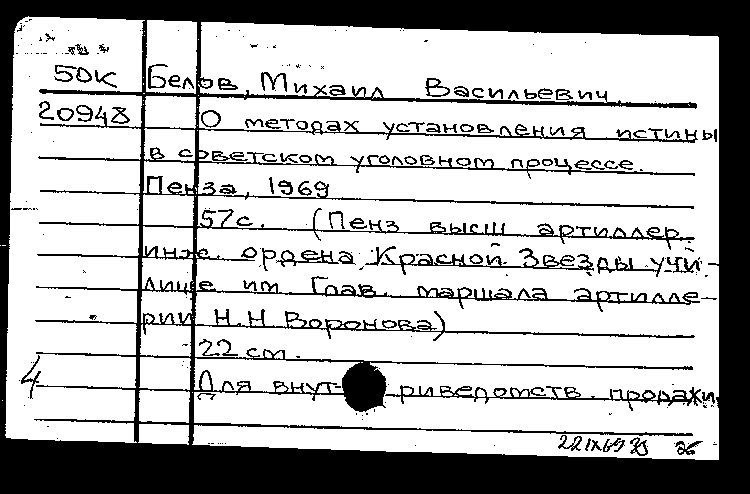 50К Белов, Михаил Васильевич.
20948 О методах установления истины
в советском уголовном процессе.
Пенза, 1969
57с. (Пенз высш артиллер.
инж. ордена Красной Звезды учи-
лище им Глав. маршала артилле-
рии Н.Н Воронова)
22 см.
Для внут риведомств. продажи
4